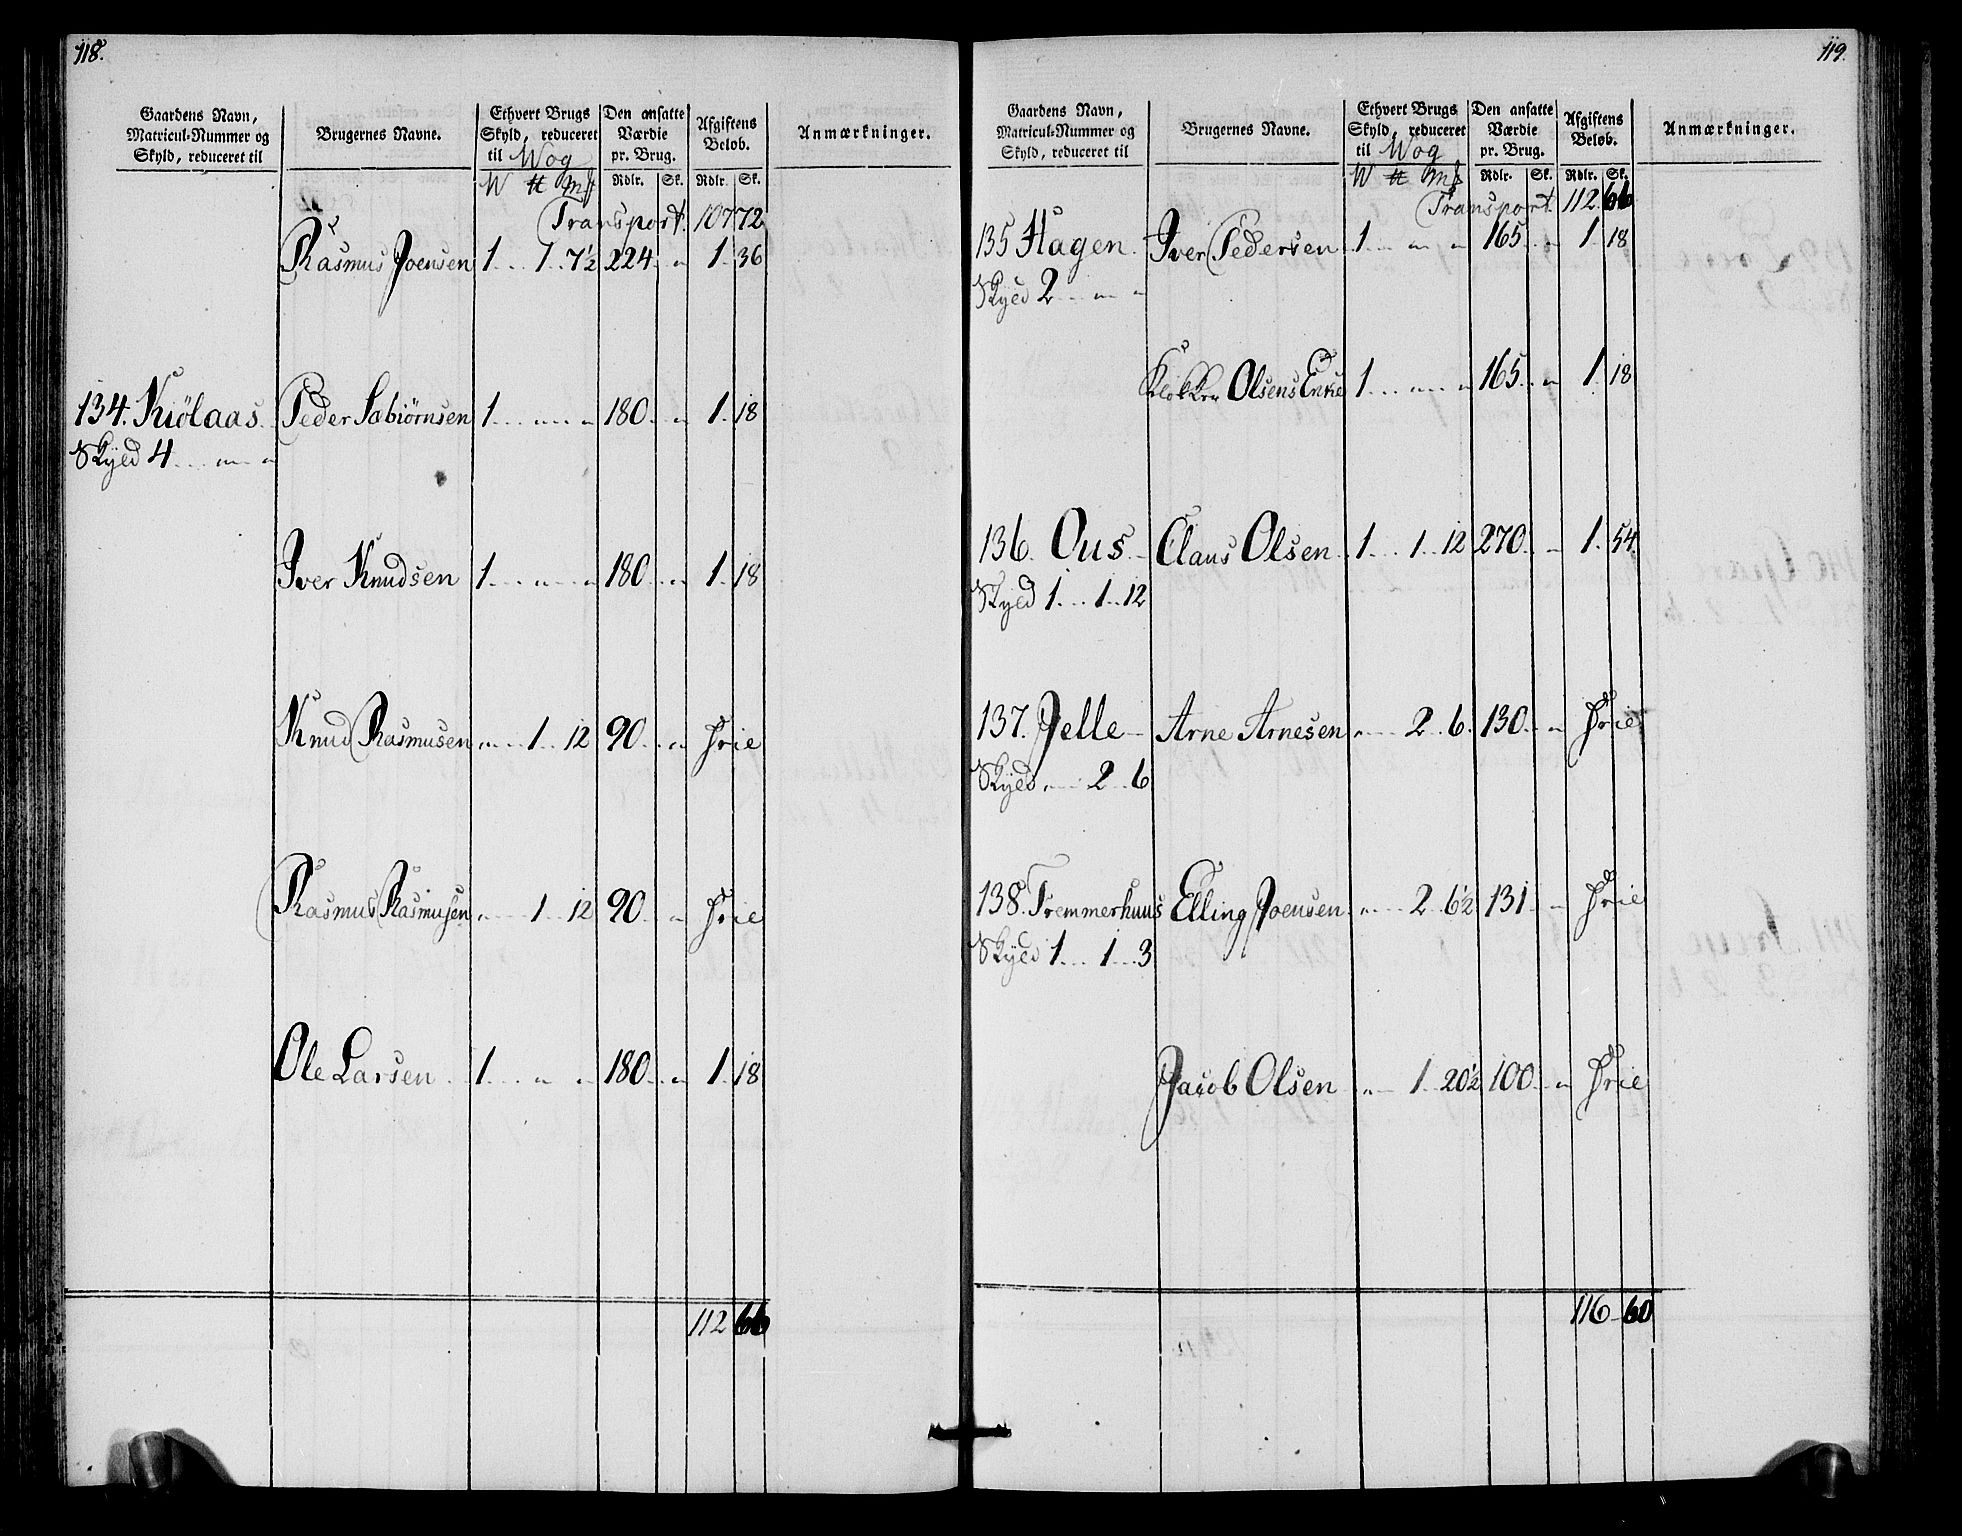 118.
Gaardens Navn, Matricul-Nummer og Skyld, reduceret til
Brugernes Navne.
Ethvert Brugs Skyld, reduceret til Wog
Den ansatte Værdie pr. Brug.
Afgiftens Beløb.
Anmærkninger.
W ℔ mk Rdlr. Sk. Rdlr. Sk.
Transport. 107 72
Rasmus Joensen 1 .. 1 .. 7½ 224 .. " 1 .. 36
134. Kiölaas Peder Sæbiörnsen 1 .. " .. " 180 .. " 1 .. 18
Skyld 4 .. " .. "
Iver Knudsen 1 .. " .. " 180 .. " 1 .. 18
Knud Rasmusen " .. 1 .. 12 90 .. " Frie
Rasmus Rasmusen " .. 1 .. 12 90 .. " Frie
Ole Larsen 1 .. " .. " 180 .. " 1 .. 18
112 66
119.
Gaardens Navn, Matricul-Nummer og Skyld, reduceret til
Brugernes Navne.
Ethvert Brugs Skyld, reduceret til Wog
Den ansatte Værdie pr. Brug.
Afgiftens Beløb.
Anmærkninger.
W ℔ mk Rdlr. Sk. Rdlr. Sk.
Transport. 112 66
135 Hagen Iver Pedersen 1 .. " .. " 165 .. " 1 .. 18
Skyld 2 .. " .. "
Klokker Olsens Enke 1 .. " .. " 165 .. " 1 .. 18
136. Ous Claus Olsen 1 .. 1 .. 12 270 .. " 1 .. 54
Skyld 1 .. 1 .. 12
137. Jelle Arne Arnesen " .. 2 .. 6 130 .. " Frie
Skyld " .. 2 .. 6
138. Tremmerhuus Elling Joensen " .. 2 .. 6½ 131 .. " Frie
Skyld 1 .. 1 .. 3
Jacob Olsen " .. 1 .. 20½ 100 .. " Frie
116 60